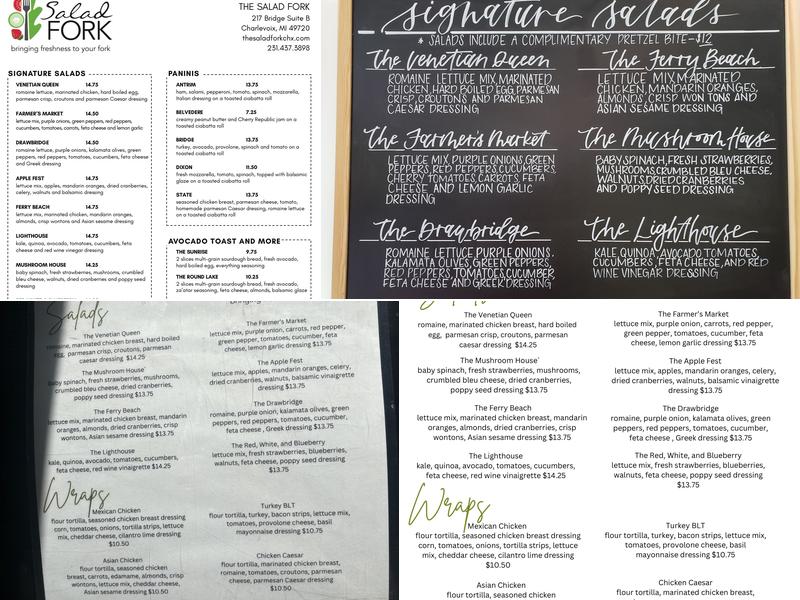 Salad
FORK
bringing freshness to your fork
THE SALAD FORK
217 Bridge Suite B
Charlevoix, MI 49720
thesaladforkchx.com
231.437.3898
SIGNATURE SALADS
VENETIAN QUEEN 14.75
romaine lettuce, marinated chicken, hard boiled egg,
parmesan crisp, croutons and parmesan Caesar dressing
FARMER'S MARKET 14.50
lettuce mix, purple onions, green peppers, red peppers,
cucumbers, tomatoes, carrots, feta cheese and lemon garlic
DRAWBRIDGE 14.50
romaine lettuce, purple onions, kalamata olives, green
peppers, red peppers, tomatoes, cucumbers, feta cheese
and Greek dressing
APPLE FEST 14.75
lettuce mix, apples, mandarin oranges, dried cranberries,
celery, walnuts and balsamic dressing
FERRY BEACH 14.75
lettuce mix, marinated chicken, mandarin oranges,
almonds, crisp wontons and Asian sesame dressing
LIGHTHOUSE 14.75
kale, quinoa, avocado, tomatoes, cucumbers, feta cheese
and red wine vinaigrette dressing
MUSHROOM HOUSE 14.25
baby spinach, fresh strawberries, mushrooms, crumbled
bleu cheese, walnuts, dried cranberries and poppyseed
dressing
PANINIS
ANTRIM 13.75
ham, salami, pepperoni, tomato, spinach, mozzarella,
Italian dressing on a toasted ciabatta roll
BELVEDERE 7.25
creamy peanut butter and Cherry Republic jam on a
toasted ciabatta roll
BRIDGE 13.75
turkey, avocado, provolone, spinach and tomato on a
toasted ciabatta roll
DIXON 11.50
fresh mozzarella, tomato, spinach, topped with balsamic
glaze on a toasted ciabatta roll
STATE 13.75
seasoned chicken breast, parmesan cheese, tomato,
homemade parmesan Caesar dressing, romaine lettuce
on a toasted ciabatta roll
AVOCADO TOAST AND MORE
THE SUNRISE 9.75
2 slices multi-grain sourdough bread, fresh avocado,
hard boiled egg, everything seasoning
THE ROUND LAKE 10.25
2 slices multi-grain sourdough bread, fresh avocado,
za'atar seasoning, feta cheese, almonds, balsamic glaze
signature salads
* SALADS INCLUDE A COMPLIMENTARY PRETZEL BITE - $12
The Venetian Queen
ROMAINE LETTUCE MIX, MARINATED
CHICKEN, HARD BOILED EGG, PARMESAN
CRISP, CROUTONS AND PARMESAN
CAESAR DRESSING
The Ferry Beach
LETTUCE MIX, MARINATED
CHICKEN, MANDARIN ORANGES,
ALMONDS, CRISP WON TONS AND
ASIAN SESAME DRESSING
The Farmer's Market
LETTUCE MIX, PURPLE ONIONS, GREEN
PEPPERS, RED PEPPERS, CUCUMBERS,
CHERRY TOMATOES, CARROTS, FETA
CHEESE AND LEMON GARLIC
DRESSING
The Mushroom House
BABY SPINACH, FRESH STRAWBERRIES,
MUSHROOMS, CRUMBLED BLEU CHEESE,
WALNUTS, DRIED CRANBERRIES
AND POPPY SEED DRESSING
The Drawbridge
ROMAINE LETTUCE PURPLE ONIONS,
KALAMATA OLIVES, GREEN PEPPERS,
RED PEPPERS, TOMATOES, CUCUMBER,
FETA CHEESE AND GREEK DRESSING
The Lighthouse
KALE, QUINOA, AVOCADO, TOMATOES,
CUCUMBERS, FETA CHEESE, AND RED
WINE VINEGAR DRESSING
Salads
The Venetian Queen
romaine, marinated chicken breast, hard boiled
egg, parmesan crisp, croutons, parmesan
caesar dressing $14.25
The Mushroom House
baby spinach, fresh strawberries, mushrooms,
crumbled bleu cheese, dried cranberries,
poppy seed dressing $13.75
The Ferry Beach
lettuce mix, marinated chicken breast, mandarin
oranges, almonds, dried cranberries, crisp
wontons, Asian sesame dressing $13.75
The Lighthouse
kale, quinoa, avocado, tomatoes, cucumbers,
feta cheese, red wine vinaigrette $14.25
The Farmer's Market
lettuce mix, purple onion, carrots, red pepper,
green pepper, tomatoes, cucumber, feta
cheese, lemon garlic dressing $13.75
The Apple Fest
lettuce mix, apples, mandarin oranges, celery,
dried cranberries, walnuts, balsamic vinaigrette
dressing $13.75
The Drawbridge
romaine, purple onion, kalamata olives, green
pepper, red pepper, tomatoes, cucumber,
feta cheese , Greek dressing $13.75
The Red, White, and Blueberry
lettuce mix, fresh strawberries, blueberries,
walnuts, feta cheese, poppy seed dressing
$13.75
Wraps
Mexican Chicken
flour tortilla, seasoned chicken breast dressing
corn, tomatoes, onions, tortilla strips, lettuce
mix, cheddar cheese, cilantro lime dressing
$10.50
Asian Chicken
flour tortilla, seasoned chicken
breast, carrots, edamame, almonds, crisp
wontons, lettuce mix, cheddar cheese,
Asian sesame dressing $10.50
Turkey BLT
flour tortilla, turkey, bacon strips, lettuce mix,
tomatoes, provolone cheese, basil
mayonnaise dressing $10.75
Chicken Caesar
flour tortilla, marinated chicken breast,
romaine, carrots, tomatoes, croutons,
parmesan cheese, parmesan dressing
$10.50
The Venetian Queen
romaine, marinated chicken breast, hard boiled
egg, parmesan crisp, croutons, parmesan
caesar dressing $14.25
The Mushroom House
baby spinach, fresh strawberries, mushrooms,
crumbled bleu cheese, dried cranberries,
poppy seed dressing $13.75
The Ferry Beach
lettuce mix, marinated chicken breast, mandarin
oranges, almonds, dried cranberries, crisp
wontons, Asian sesame dressing $13.75
The Lighthouse
kale, quinoa, avocado, tomatoes, cucumbers,
feta cheese, red wine vinaigrette $14.25
The Farmer's Market
lettuce mix, purple onion, carrots, red pepper,
green pepper, tomatoes, cucumber, feta
cheese, lemon garlic dressing $13.75
The Apple Fest
lettuce mix, apples, mandarin oranges, celery,
dried cranberries, walnuts, balsamic vinaigrette
dressing $13.75
The Drawbridge
romaine, purple onion, kalamata olives, green
pepper, red pepper, tomatoes, cucumber,
feta cheese , Greek dressing $13.75
The Red, White, and Blueberry
lettuce mix, fresh strawberries, blueberries,
walnuts, feta cheese, poppy seed dressing
$13.75
Wraps
Mexican Chicken
flour tortilla, seasoned chicken breast dressing
corn, tomatoes, onions, tortilla strips, lettuce
mix, cheddar cheese, cilantro lime dressing
$10.50
Asian Chicken
flour tortilla, seasoned chicken
Turkey BLT
flour tortilla, turkey, bacon strips, lettuce mix,
tomatoes, provolone cheese, basil
mayonnaise dressing $10.75
Chicken Caesar
flour tortilla, marinated chicken breast,